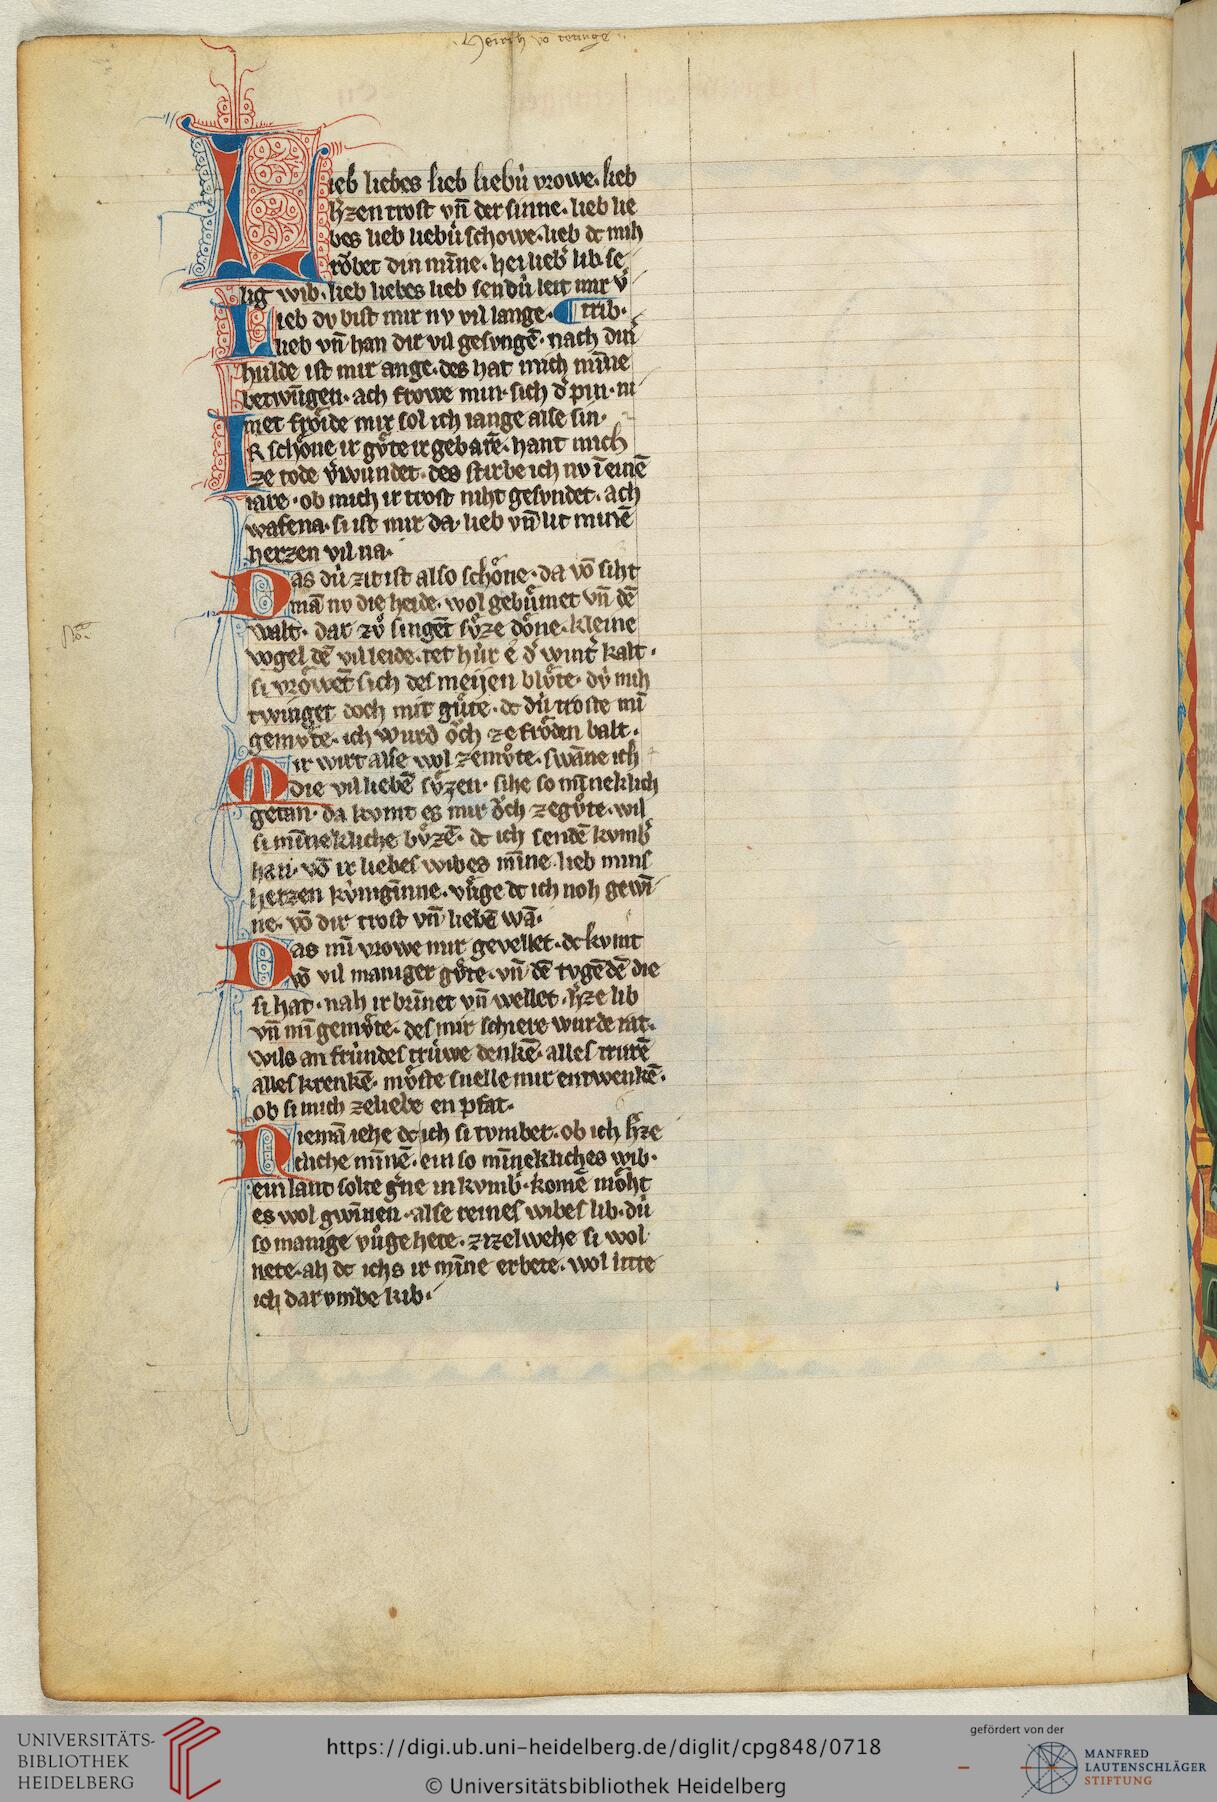 Heinrich vo tettinge
Lieb liebes lieb liebů vrowe. lieb
h̾zen trost vn̄ der sinne. lieb lie
bes lieb liebů schowe. lieb dc mih
rǒbet din mīne. hei lieb̾ lib. se
lig wib. lieb liebes lieb sendů leit mir v̾
Lieb dv bist mir nv vil lange. ¶ trib.
lieb vn̄ han dir vil gesvngē. nach din̾
hulde ist mir ange. des hat mich mīne
betwūgen. ach frowe min. sich d̾ pin. ni
met frǒide mir sol ich lange alse sin.
IR schǒne ir gv̊te ir gebarē. hant mich
ze tode v̾wundet. des stirbe ich nv ī einē
iare. ob mich ir trost niht gesvndet. ach
wafena. si ist mir da. lieb vn̄ lit minē
herzen vil na.
Das dů zit ist also schǒne. da vō siht
mā nv die heide. wol geblůmet vn̄ dē
walt. dar zů singēt sv̊ze dǒne. kleine
vogel dē vil leide. tet hůr é d̾ wint̾ kalt.
si vrǒwēt sich des meijen blv̊te. dv̊ mih
twinget doch mit gůte. dc dů trǒste mī
gemv̊te. ich wurd ǒch ze frǒden balt.
Mir wirt alse wol zemv̊te. swāne ich
die vil liebē sv̊zen. sihe so mīneklich
getan. da komt es mir ǒch zegv̊te. wil
si mīnekliche bv̊zē. dc ich sendē kvmb̾
han. vō ir liebes wibes mīne. lieb mins
herzen kv̊nigīnne. vůge dc ich noh gewī
ne. vō dir trost vn̄ liebē wā.
Das mī vrowe mir gevellet. dc kvmt
vō vil maniger gv̊te. vn̄ dē tvgēdē die
si hat. nah ir brīnet vn̄ wellet. h̾ze lib
vn̄ mī gemv̊te. des mir schiere wurde rat.
wils an frůndes trůwe denkē. alles trurē
alles krenkē. mv̊ste snelle mir entwenkē.
ob si mich zeliebe enpfat.
Niemā iehe dc ich si tvmber. ob ich h̾ze
cliche mīnē. ein so mīnekliches wib.
ein lant solte g̾ne in kvmb̾. komē mǒht
es wol gwīnen. alse reines wibes lib. dů
so manige vůge hete. zizelwehe si wol
nete. ah dc ichs ir mīne erbete. wol litte
ich dar vmbe kib.
No.ᵗᵃ
UNIVERSITÄTS-
BIBLIOTHEK
HEIDELBERG
https://digi.ub.uni-heidelberg.de/diglit/cpg848/0718
© Universitätsbibliothek Heidelberg
gefördert von der
MANFRED
LAUTENSCHLÄGER
STIFTUNG